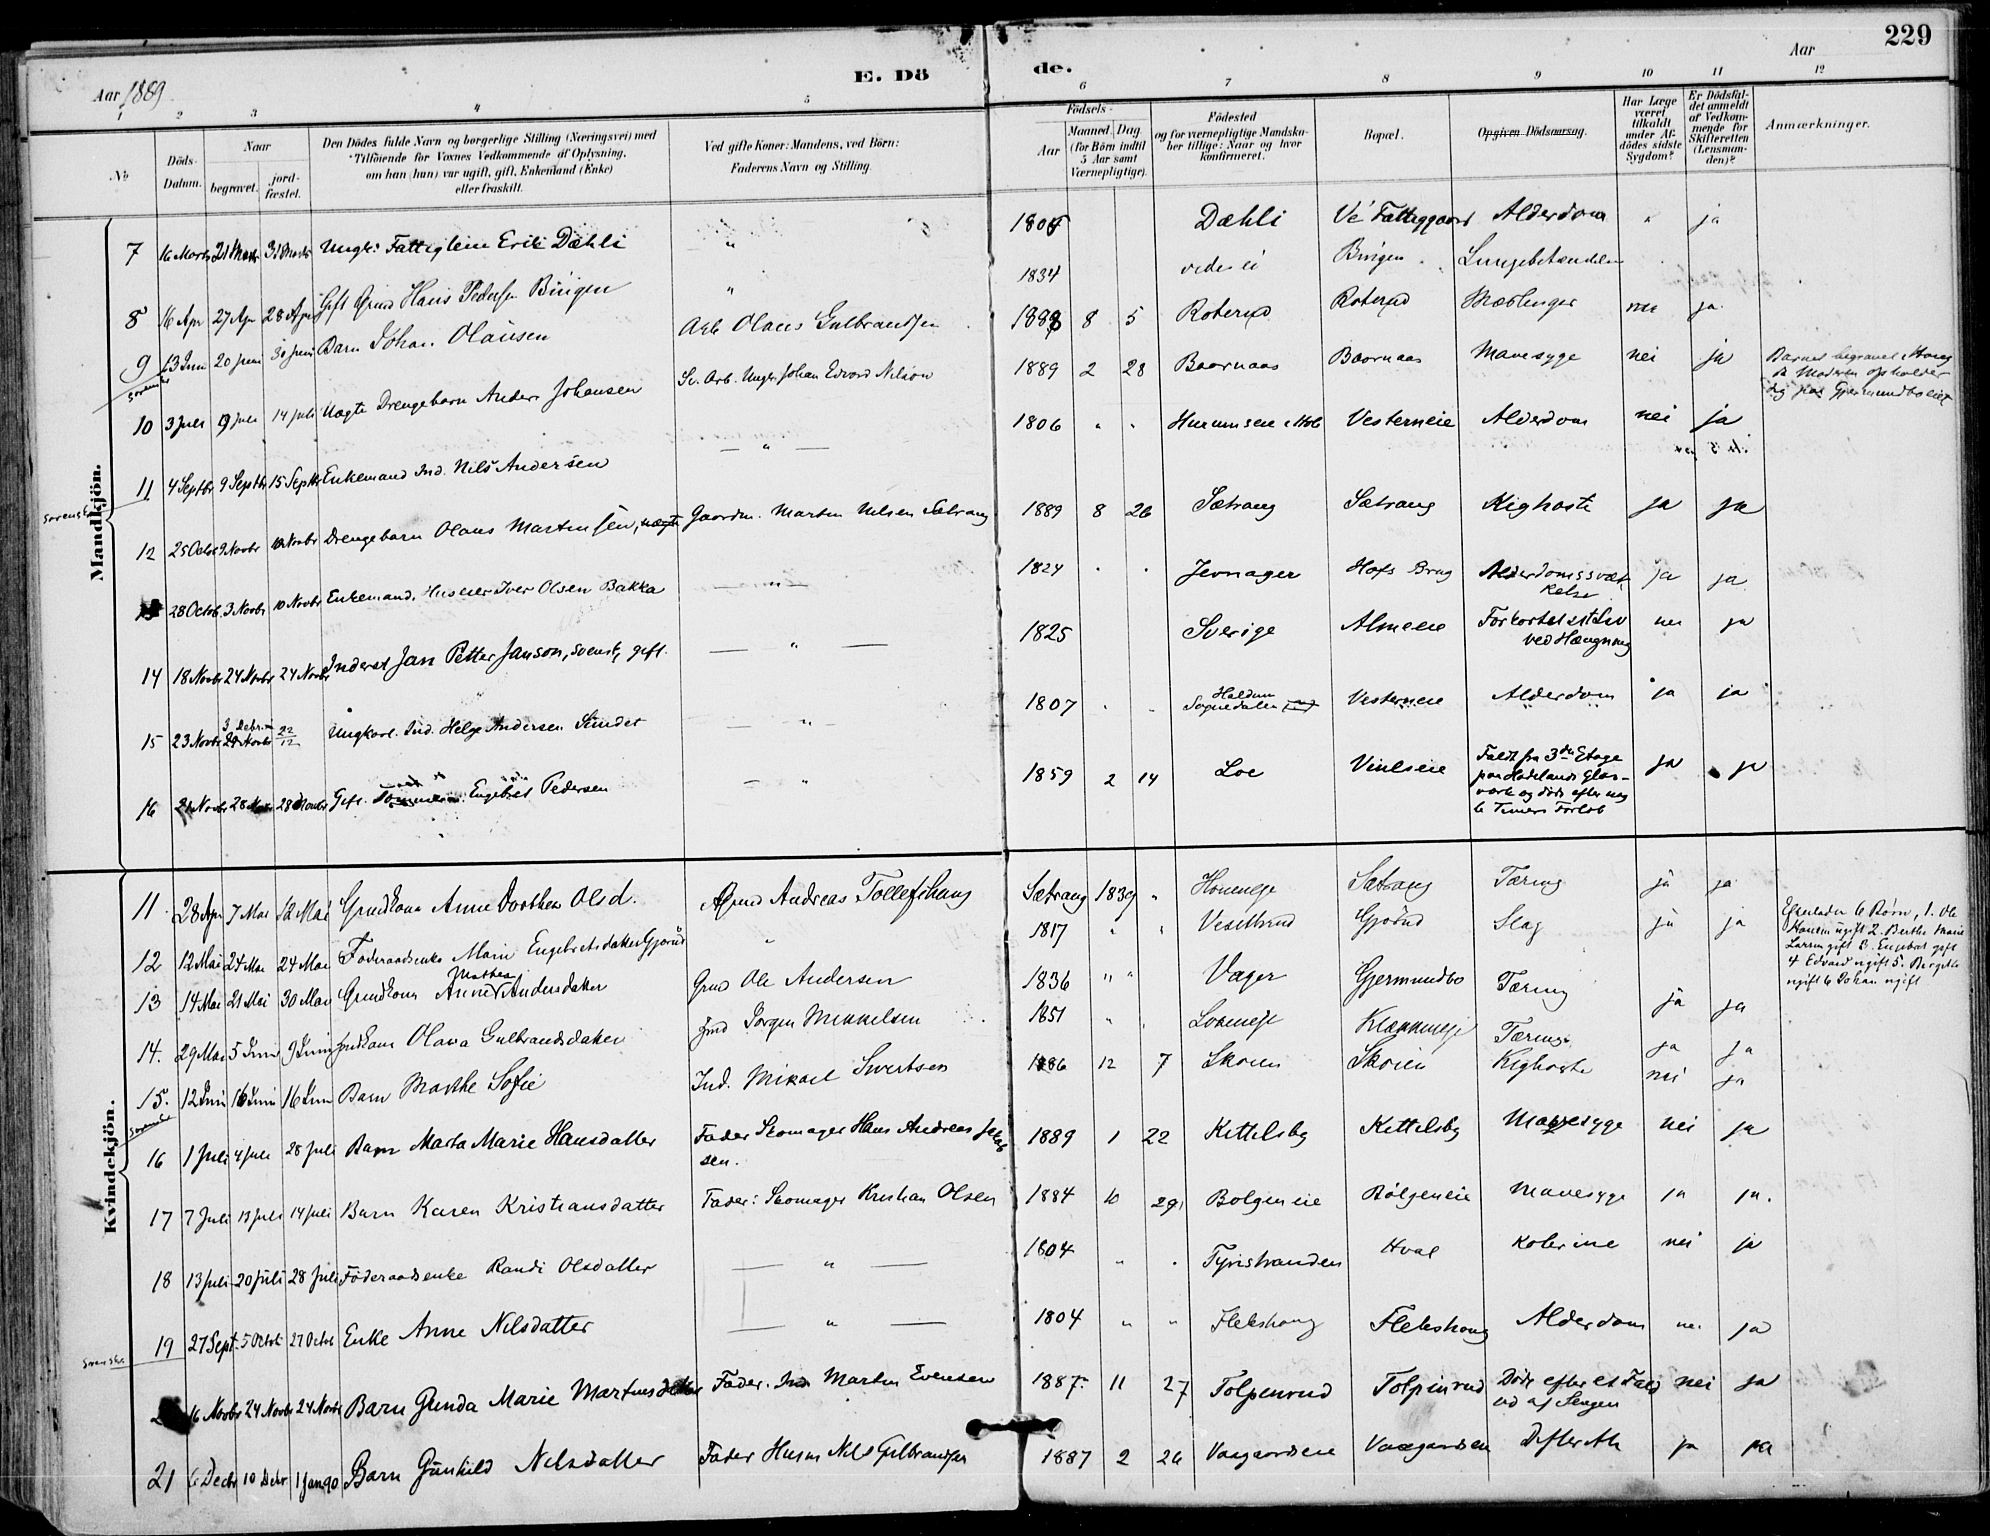 229
Aar 1889
E. Dö
de.
Aar
1 2 3 4 5 6 7 8 9 10 11 12
No
Döds-Datum.
Naar
begravet.
jord-fæstet.
Den Dödes fulde Navn og borgerlige Stilling (Næringsvei) med
Tilföiende for Voxnes Vedkommende af Oplysning,
om han (hun) var ugift, gift, Enkemand (Enke)
eller fraskilt.
Ved gifte Koner: Mandens, ved Börn:
Faderens Navn og Stilling.
Födsels-
Aar
Maaned. Dag.
(for Börn indtil
5 Aar samt
Værnepligtige).
Födested
og for værnepligtige Mandska-
ber tillige: Naar og hvor
konfirmeret.
Bopæl.
Opgiven Dödsaarsag.
Har Læge
været
tilkaldt
under Af-
dödes sidste
Sygdom?
Er Dödsfal-
det anmeldt
af Vedkom-
mende for
Skifteretten
(Lensman-
den)?
Anmærkninger.
Mandkjön.
7 16 Marts 21 Marts 31 Marts Ungk: Fattiglem Erik Dæhli " 1804 Dæhli Fattiggaard Alderdom " ja
8 16 Apr 27 Apr 28 Apr Gift Grmd Hans Pedersen Bingen " 1834 Bingen Lungebetændelse
9 13 Juni 20 Juni 30 Juni Barn Johan Olausen Arb Olaus Gulbrandsen 1888 8 5 Roterud Roterud Mæslinger nei ja
10 3 Juli 9 Juli 14 Juli Uægte Drengebarn Anders Johansen Sv. Arb. Ungk. Johan Edvard Nilson 1889 2 28 Baarnaas Baarnaas Mavesyge nei ja
Barnet begravet i Honeg
da Moderen opholder
sig paa Gjermundboeiet
11 4 Septbr 9 Septbr 15 Septbr Enkemand Ind. Nils Andersen — " — 1806 " " Hurumseie i Hole Vesterneie Alderdom nei ja
12 25 Octob 9 Novbr 10 Novbr Drengebarn Olaus Martinsen, uægte Gaardm. Martin Nilsen Sætrang 1889 8 26 Sætrang Sætrang Kighoste ja ja
13 28 Octob. 3 Novbr 10 Novbr Enkemand. Huseier Iver Olsen Bakka — " — 1824 " " Jevnager Hofs Brug Alderdomssvæk-
kelse ja ja
14 18 Novbr 24 Novbr 24 Novbr Inderst Jan Petter Janson, svensk, gift. — " — 1825 Sverige Almeie Forkortet sit Liv
ved Hængning nei ja
15 23 Novbr 3 Debr. 29 Novbr 22/12 Ungkarl. Ind. Helge Andersen Sundet — " — 1807 " " Haldum
Sognedalen Vesterneie Alderdom ja ja
16 21 Novbr 28 Novbr 28 Novbr Gift. Engebret Pedersen — " 1859 2 14 Loe Vinlseie Faldt fra 3die Etage
paa Hadelands Glas-
værk og döde efter nog
le Timers Forløb ja ja
Kvindekjön.
11 28 Apr 7 Mai 12 Mai Grmdkone Anne Dorthea Olsd. Grmd Andreas Tollefshaug Sætrang 1839 " Honenege Sætrang Tæring ja ja
12 12 Mai 24 Mai 24 Mai Føderaadsenke Marie Engebretsdatter Gjørud " 1817 " " Veselbrud Gjørud Slag ja ja
Efterlader 6 Børn, 1. Ole
Hansen ugift 2. Berthe Marie
Larsen gift 3. Engebret gift
4 Edvard ugift 5. Birgithe
ugift 6 Johan ugift
13 14 Mai 21 Mai 30 Mai Grmdkone Anne Mathea Andersdatter Grmd Ole Andersen 1836 " " Vager Gjermundbo Tæring ja ja
14. 29 Mai 5 Juni 9 Juni Grmdkone Olava Gulbrandsdatter Grmd Jørgen Mikkelsen 1851 " " Klækkenege Tæring ja ja
15. 12 Juni 16 Juni 16 Juni Barn Marthe Sofie Ind. Mikael Sivertsen 1886 12 7 Skoien Skoien Kighoste nei ja
16 1 Juli 4 Juli 28 Juli Barn Marta Marie Hansdatter Fader Skomager Hans Andreas Jakob
sen. 1889 1 22 Kittelsby Kittelsby Mavesyge nei ja
17 7 Juli 13 Juli 14 Juli Barn Karen Kristiansdatter Fader: Skomager Kristian Olsen 1884 10 29 Bølgeneie Bølgeneie Mavesyge ja ja.
18 13 Juli 20 Juli 28 Juli Føderaadsenke Randi Olsdatter — " — 1804 " " Tyristranden Hval Kolerine nei ja
19 27 Sept. 5 Octob 27 Octob Enke Anne Nilsdatter — " — 1804 " " Flekshaug Flekshaug Alderdom nei ja
16 Novbr 24 Novbr 24 Novbr Barn Gunda Marie Martinsdatter Fader. Ind. Martin Evensen 1887. 11 27 Tolpinrud Tolpinrud Døde efter et Fald
ud af Sengen nei ja
21 6 Decbr 10 Debr 1 Jan 90 Barn Gunhild Nilsdatter Fader Husm Nils Gulbrandsen 1887 2 26 Vaagaardseie Vaagaardseie Difterith ja ja